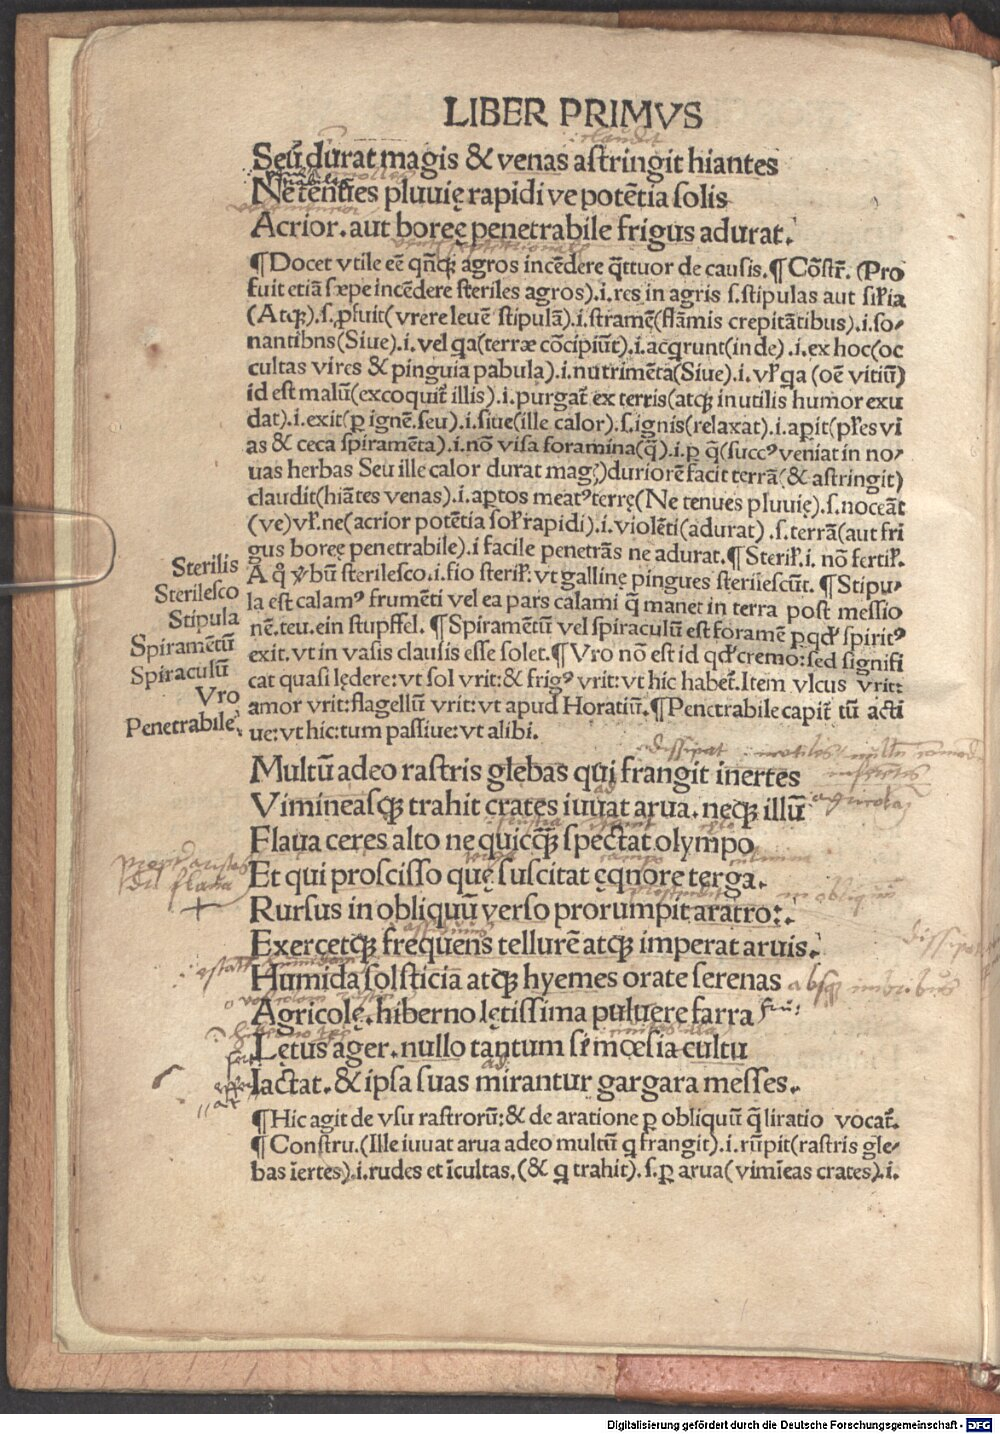 LIBER PRIMVS
claudit
Seu durat magis & venas astringit hiantes
Ne tenues pluuię rapidi ve potẽtia solis
Acrior. aut boreę penetrabile frigus adurat.
¶Docet vtile eẽ qñcꝙ agros incẽdere q̃ttuor de causis.¶Cõstr̃. (Pro
fuit etiã sæpe incẽdere steriles agros).i.res in agris .s.stipulas aut sil'ia
(Atqꝫ).s.ꝓfuit(vrere leuẽ stipulã).i.stramẽ(flãmis crepitãtibus).i.so⸗
nantibns(Siue).i.vel qa(terræ cõcipiũt).i.acqrunt(inde).i.ex hoc(oc
cultas vires & pinguia pabula).i.nutrimẽta(Siue).i.vl' qa (oẽ vitiũ)
id est malũ(excoquit̃ illis).i.purgat̃ ex terris(atqꝫ inutilis humor exu
dat).i.exit(ꝑ ignẽ.seu).i.siue(ille calor).s.ignis(relaxat).i.apit(pl'es vi
as & ceca spiramẽta).i.nõ visa foramina(q̃).i.ꝑ q̃(succꝰ veniat in no⸗
uas herbas Seu ille calor durat magꝭ)duriorẽ facit terrã(& astringit)
claudit(hiãtes venas).i.aptos meatꝰ terrę(Ne tenues pluuię).s.noceãt
(ve)vl'.ne(acrior potẽtia sol' rapidi).i.violẽti(adurat).s.terrã(aut fri
gus boreę penetrabile).i facile penetrãs ne adurat.¶Steril'.i. nõ fertil'.
Sterilis
A q̊ v̉bũ sterilesco.i.fio steril': vt gallinę pingues sterilescũt. ¶Stipu⸗
Sterilesco
la est calamꝰ frumẽti vel ea pars calami q̃ manet in terra post messio
Stipula
nẽ.teu.ein stupffel. ¶Spiramẽtũ vel spiraculũ est foramẽ ꝑ qd' spiritꝰ
Spiramẽtũ
exit. vt in vasis clausis esse solet.¶Vro nõ est id qd' cremo: sed signifi
Spiraculũ
cat quasi lędere: vt sol vrit: & frigꝰ vrit: vt hic habet̃. Item vlcus vrit:
Vro
amor vrit: flagellũ vrit: vt apud Horatiũ.¶Penetrabile capit̃ tũ acti
Penetrabile
ue: vt hic: tum passiue: vt alibi.
dissipat
Multũ adeo rastris glebas qui frangit inertes
Vimineasqꝫ trahit crates iuuat arua. neqꝫ illũ
Flaua ceres alto ne quicq̃ꝫ spectat olympo
Et qui proscisso quę suscitat ęqnore terga.
Rursus in obliquũ verso prorumpit aratro:.
Exercetqꝫ frequens tellurẽ atqꝫ imperat aruis.
Humida solsticiã atqꝫ hyemes orate serenas absqꝫ imbribus
Agricolę. hiberno lętissima puluere farra
Lętus ager. nullo tantum se mœsia cultu
Iactat. & ipsa suas mirantur gargara messes.
¶Hic agit de vsu rastrorũ: & de aratione ꝑ obliquũ q̃ liratio vocat̃.
¶Constru.(Ille iuuat arua adeo multũ q frangit).i.rũpit(rastris gle⸗
bas ĩertes).i.rudes et ĩcultas.(& q trahit).s.ꝑ arua(vimĩeas crates).i.
Digitalisierung gefördert durch die Deutsche Forschungsgemeinschaft - DFG